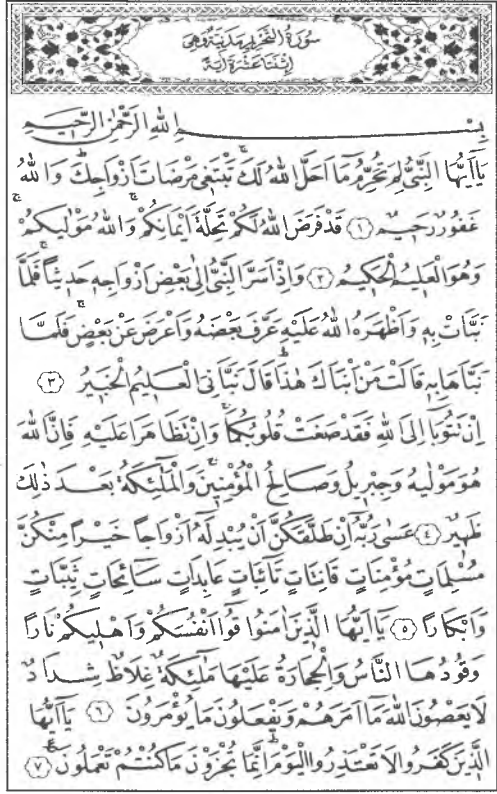 سُورَةُ التَّحْرِيمِ مَدَنِيَّةٌ وَهِيَ
اِثْنَتَا عَشْرَةَ اٰيَةً
بِسْــــــــــــمِ اللهِ الرَّحْمٰنِ الرَّحِيمِ
يَٓا اَيُّهَا النَّبِيُّ لِمَ تُحَرِّمُ مَٓا اَحَلَّ اللهُ لَكَۚ تَبْتَغِي مَرْضَاتَ اَزْوَاجِكَۜ وَاللهُ
غَفُورٌ رَحِيمٌ ﴿١﴾ قَدْ فَرَضَ اللهُ لَكُمْ تَحِلَّةَ اَيْمَانِكُمْۚ وَاللهُ مَوْلٰيكُمْۚ
وَهُوَ الْعَلِيمُ الْحَكِيمُ ﴿٢﴾ وَاِذْ اَسَرَّ النَّبِيُّ اِلٰى بَعْضِ اَزْوَاجِهِ حَدِيثًاۚ فَلَمَّا
نَبَّاَتْ بِهِ وَاَظْهَرَهُ اللهُ عَلَيْهِ عَرَّفَ بَعْضَهُ وَاَعْرَضَ عَنْ بَعْضٍۚ فَلَمَّا
نَبَّاَهَا بِهِ قَالَتْ مَنْ اَنْبَاَكَ هٰذَاۜ قَالَ نَبَّاَنِيَ الْعَلِيمُ الْخَبِيرُ ﴿٣﴾
اِنْ تَتُوبَٓا اِلَى اللهِ فَقَدْ صَغَتْ قُلُوبُكُمَاۚ وَاِنْ تَظَاهَرَا عَلَيْهِ فَاِنَّ اللهَ
هُوَ مَوْلٰيهُ وَجِبْرِيلُ وَصَالِحُ الْمُؤْمِنِينَۚ وَالْمَلٰٓئِكَةُ بَعْدَ ذٰلِكَ
ظَهِيرٌ ﴿٤﴾ عَسٰى رَبُّهُٓ اِنْ طَلَّقَكُنَّ اَنْ يُبْدِلَهُٓ اَزْوَاجًا خَيْرًا مِنْكُنَّ
مُسْلِمَاتٍ مُؤْمِنَاتٍ قَانِتَاتٍ تَٓائِبَاتٍ عَابِدَاتٍ سَٓائِحَاتٍ ثَيِّبَاتٍ
وَاَبْكَارًا ﴿٥﴾ يَٓا اَيُّهَا الَّذِينَ اٰمَنُوا قُٓوا اَنْفُسَكُمْ وَاَهْلِيكُمْ نَارًا
وَقُودُهَا النَّاسُ وَالْحِجَارَةُ عَلَيْهَا مَلٰٓئِكَةٌ غِلَاظٌ شِدَادٌ
لَا يَعْصُونَ اللهَ مَٓا اَمَرَهُمْ وَيَفْعَلُونَ مَا يُؤْمَرُونَ ﴿٦﴾ يَٓا اَيُّهَا
الَّذِينَ كَفَرُوا لَا تَعْتَذِرُوا الْيَوْمَۜ اِنَّمَا تُجْزَوْنَ مَا كُنْتُمْ تَعْمَلُونَ ﴿٧﴾